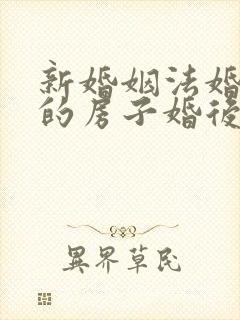 新婚姻法婚
的房子婚後
異界草民